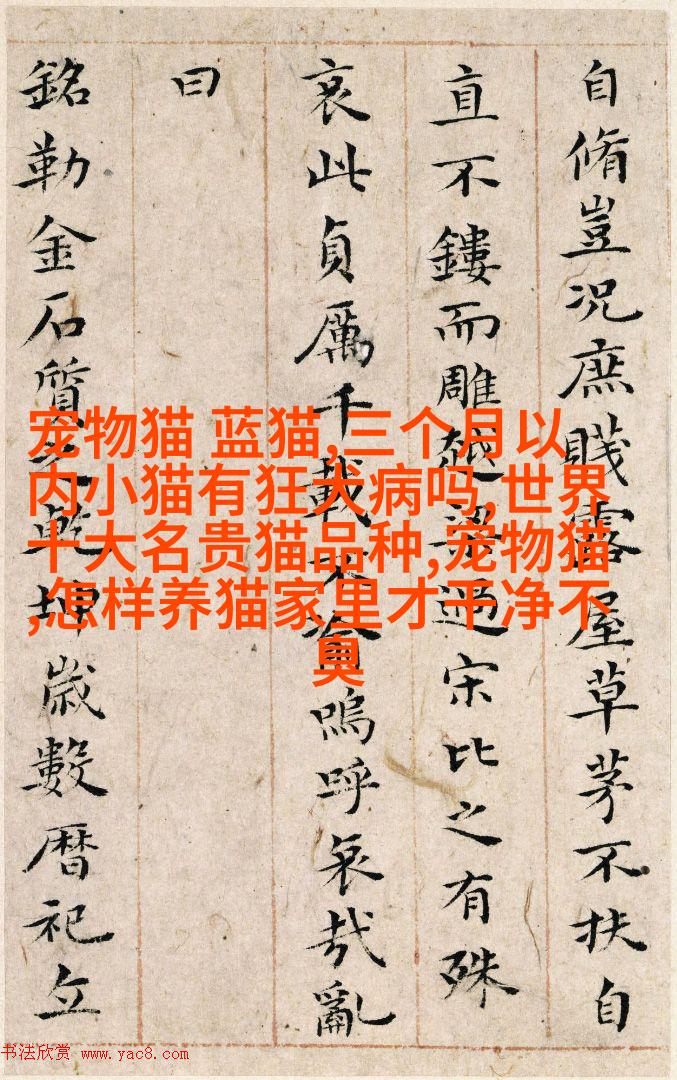 自脩豈况庶賤露屋草茅不扶自
直不鏤而雕越梁過宋比之有殊
哀此貞厲千載不渝嗚呼哀哉亂
曰
銘勒金石質之乾坤歲數暦祀立
宠物猫 蓝猫,三个月以
内小猫有狂犬病吗,世界
十大名贵猫品种,宠物猫
,怎样养猫家里才干净不
臭
书法欣赏 www.yac8.com